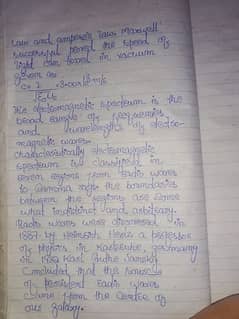 law and ampere's law maxwell
successful pened the speed of
light can travel in vacuum
given as
c = 2 = 3.00×10⁸ m/s
The electromagnetic spectrum is the
broad sample of frequencies
and wavelengths of electro-
magnetic waves.
characteristically electromagnetic
spectrum is classified in
seven regions from radio waves
to Gamma rays the boundaries
between the regions are some
what indistinct and arbitrary.
Radio waves were discovered in
1887 by Heinrich Hertz a professor
of physics in Karlsruhe, germany
in 1932 Karl Guthe Jansky
concluded that the
of persistent radio waves
came from the centre of
our galaxy.